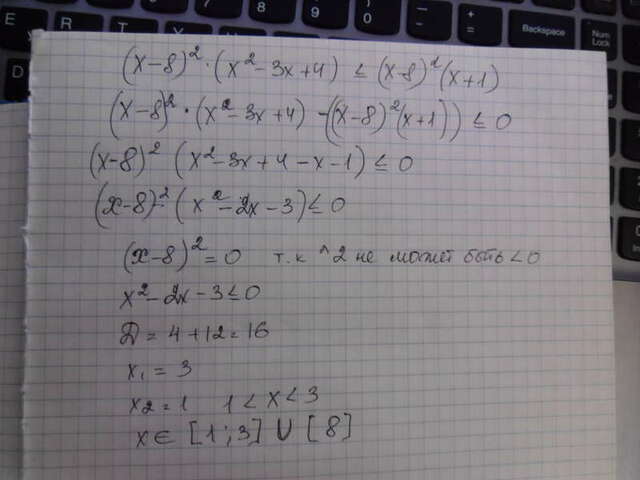 8 9 0 - _ + = Backspace Num Lock
E R D
(x-8)² · (x² - 3x + 4) ≤ (x-8)² (x+1)
(x-8)² · (x² - 3x + 4) - ((x-8)² (x+1)) ≤ 0
(x-8)² (x² - 3x + 4 - x - 1) ≤ 0
(x-8)² · (x² - 2x - 3) ≤ 0
(x-8)² = 0 т.к ^2 не может быть < 0
x² - 2x - 3 ≤ 0
D = 4 + 12 = 16
x₁ = 3
x₂ = 1 1 < x < 3
x ∈ [1; 3] ∪ [8]